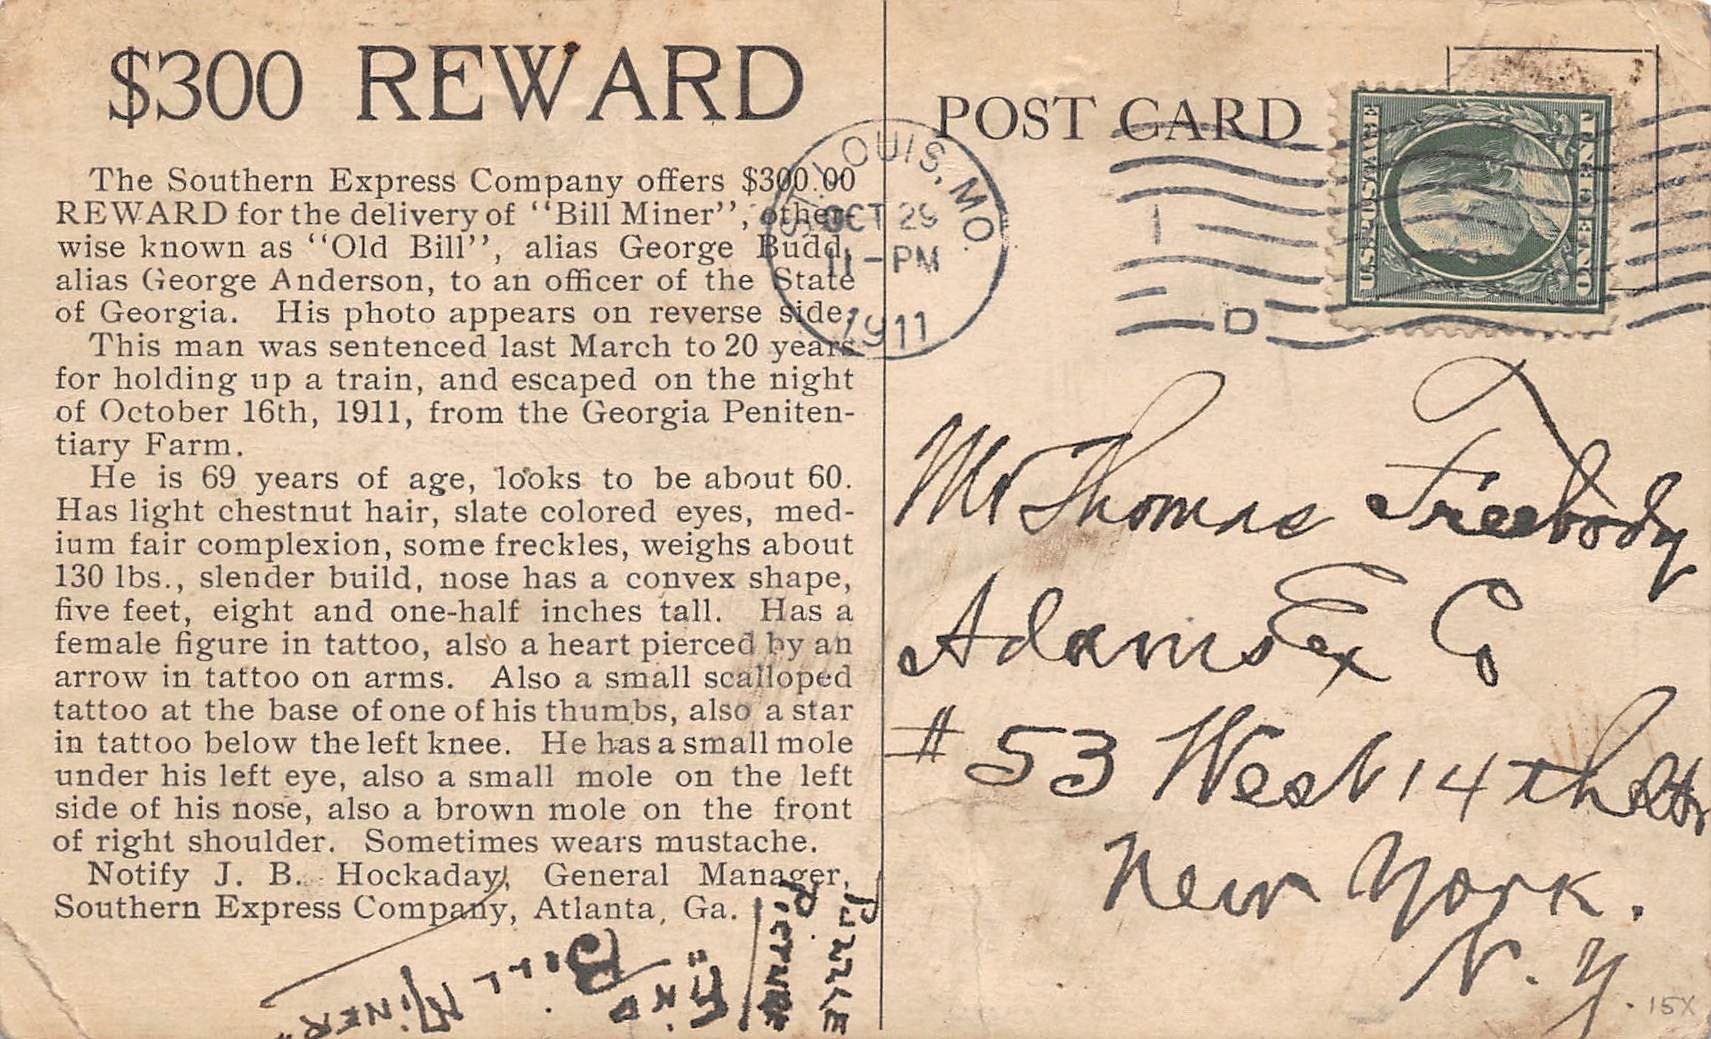 $300 REWARD
The Southern Express Company offers $300.00
REWARD for the delivery of "Bill Miner", other-
wise known as "Old Bill", alias George Budd,
alias George Anderson, to an officer of the State
of Georgia. His photo appears on reverse side.
This man was sentenced last March to 20 years
for holding up a train, and escaped on the night
of October 16th, 1911, from the Georgia Peniten-
tiary Farm.
He is 69 years of age, looks to be about 60.
Has light chestnut hair, slate colored eyes, med-
ium fair complexion, some freckles, weighs about
130 lbs., slender build, nose has a convex shape,
five feet, eight and one-half inches tall. Has a
female figure in tattoo, also a heart pierced by an
arrow in tattoo on arms. Also a small scalloped
tattoo at the base of one of his thumbs, also a star
in tattoo below the left knee. He has a small mole
under his left eye, also a small mole on the left
side of his nose, also a brown mole on the front
of right shoulder. Sometimes wears mustache.
Notify J. B. Hockaday, General Manager,
Southern Express Company, Atlanta, Ga.
Puzzle
Picture
"Find
Bill
Miner"
POST CARD
ST. LOUIS, MO.
OCT 29
11-PM
1911
D
U.S. POSTAGE
ONE CENT
Mr Thomas Freebody
Adams Ex Co
# 53 West 14th Str
New York.
N.Y.
15X